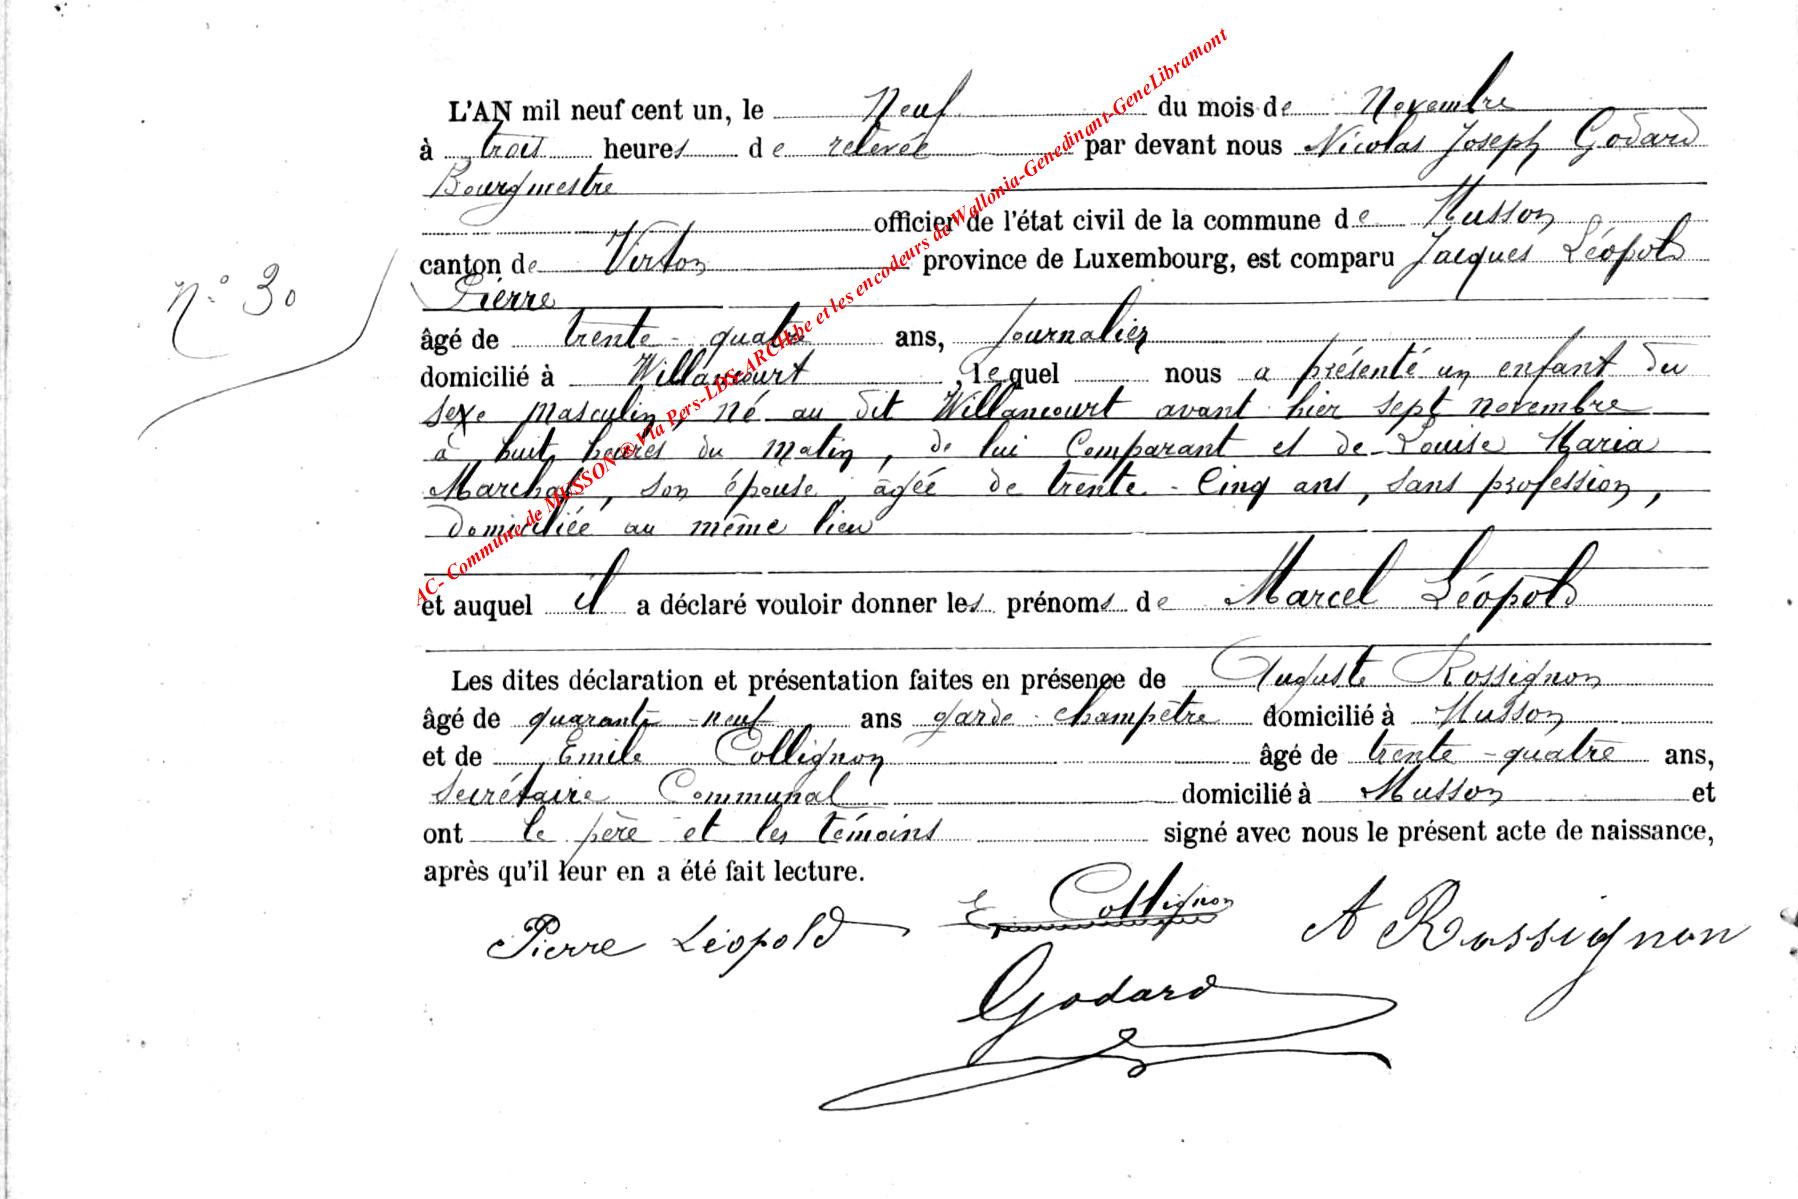 L'AN mil neuf cent un, le Neuf du mois de Novembre
à trois heures de relevée par devant nous Nicolas Joseph Godard
Bourgmestre
officier de l'état civil de la commune de Musson
canton de Virton province de Luxembourg, est comparu Jacques Léopold
Pierre
n° 30
âgé de trente-quatre ans, journalier
domicilié à Willancourt, lequel nous a présenté un enfant du
sexe masculin, né au dit Willancourt avant hier sept novembre
à huit heures du matin, de lui Comparant et de Louise Maria
Marchal, son épouse, âgée de trente-Cinq ans, sans profession,
domiciliée au même lieu
et auquel il a déclaré vouloir donner les prénoms de Marcel Léopold
Les dites déclaration et présentation faites en présence de Auguste Rossignon
âgé de quarante-neuf ans garde-champêtre domicilié à Musson
et de Emile Collignon âgé de trente-quatre ans,
Secrétaire Communal domicilié à Musson et
ont le père et les témoins signé avec nous le présent acte de naissance,
après qu'il leur en a été fait lecture.
Pierre Léopold E Collignon A Rossignon
Godard
AC- Commune de MUSSON ® Via Pers-LDS-ARCH.be et les encodeurs de Wallonia-Genedinant-GeneLibramont